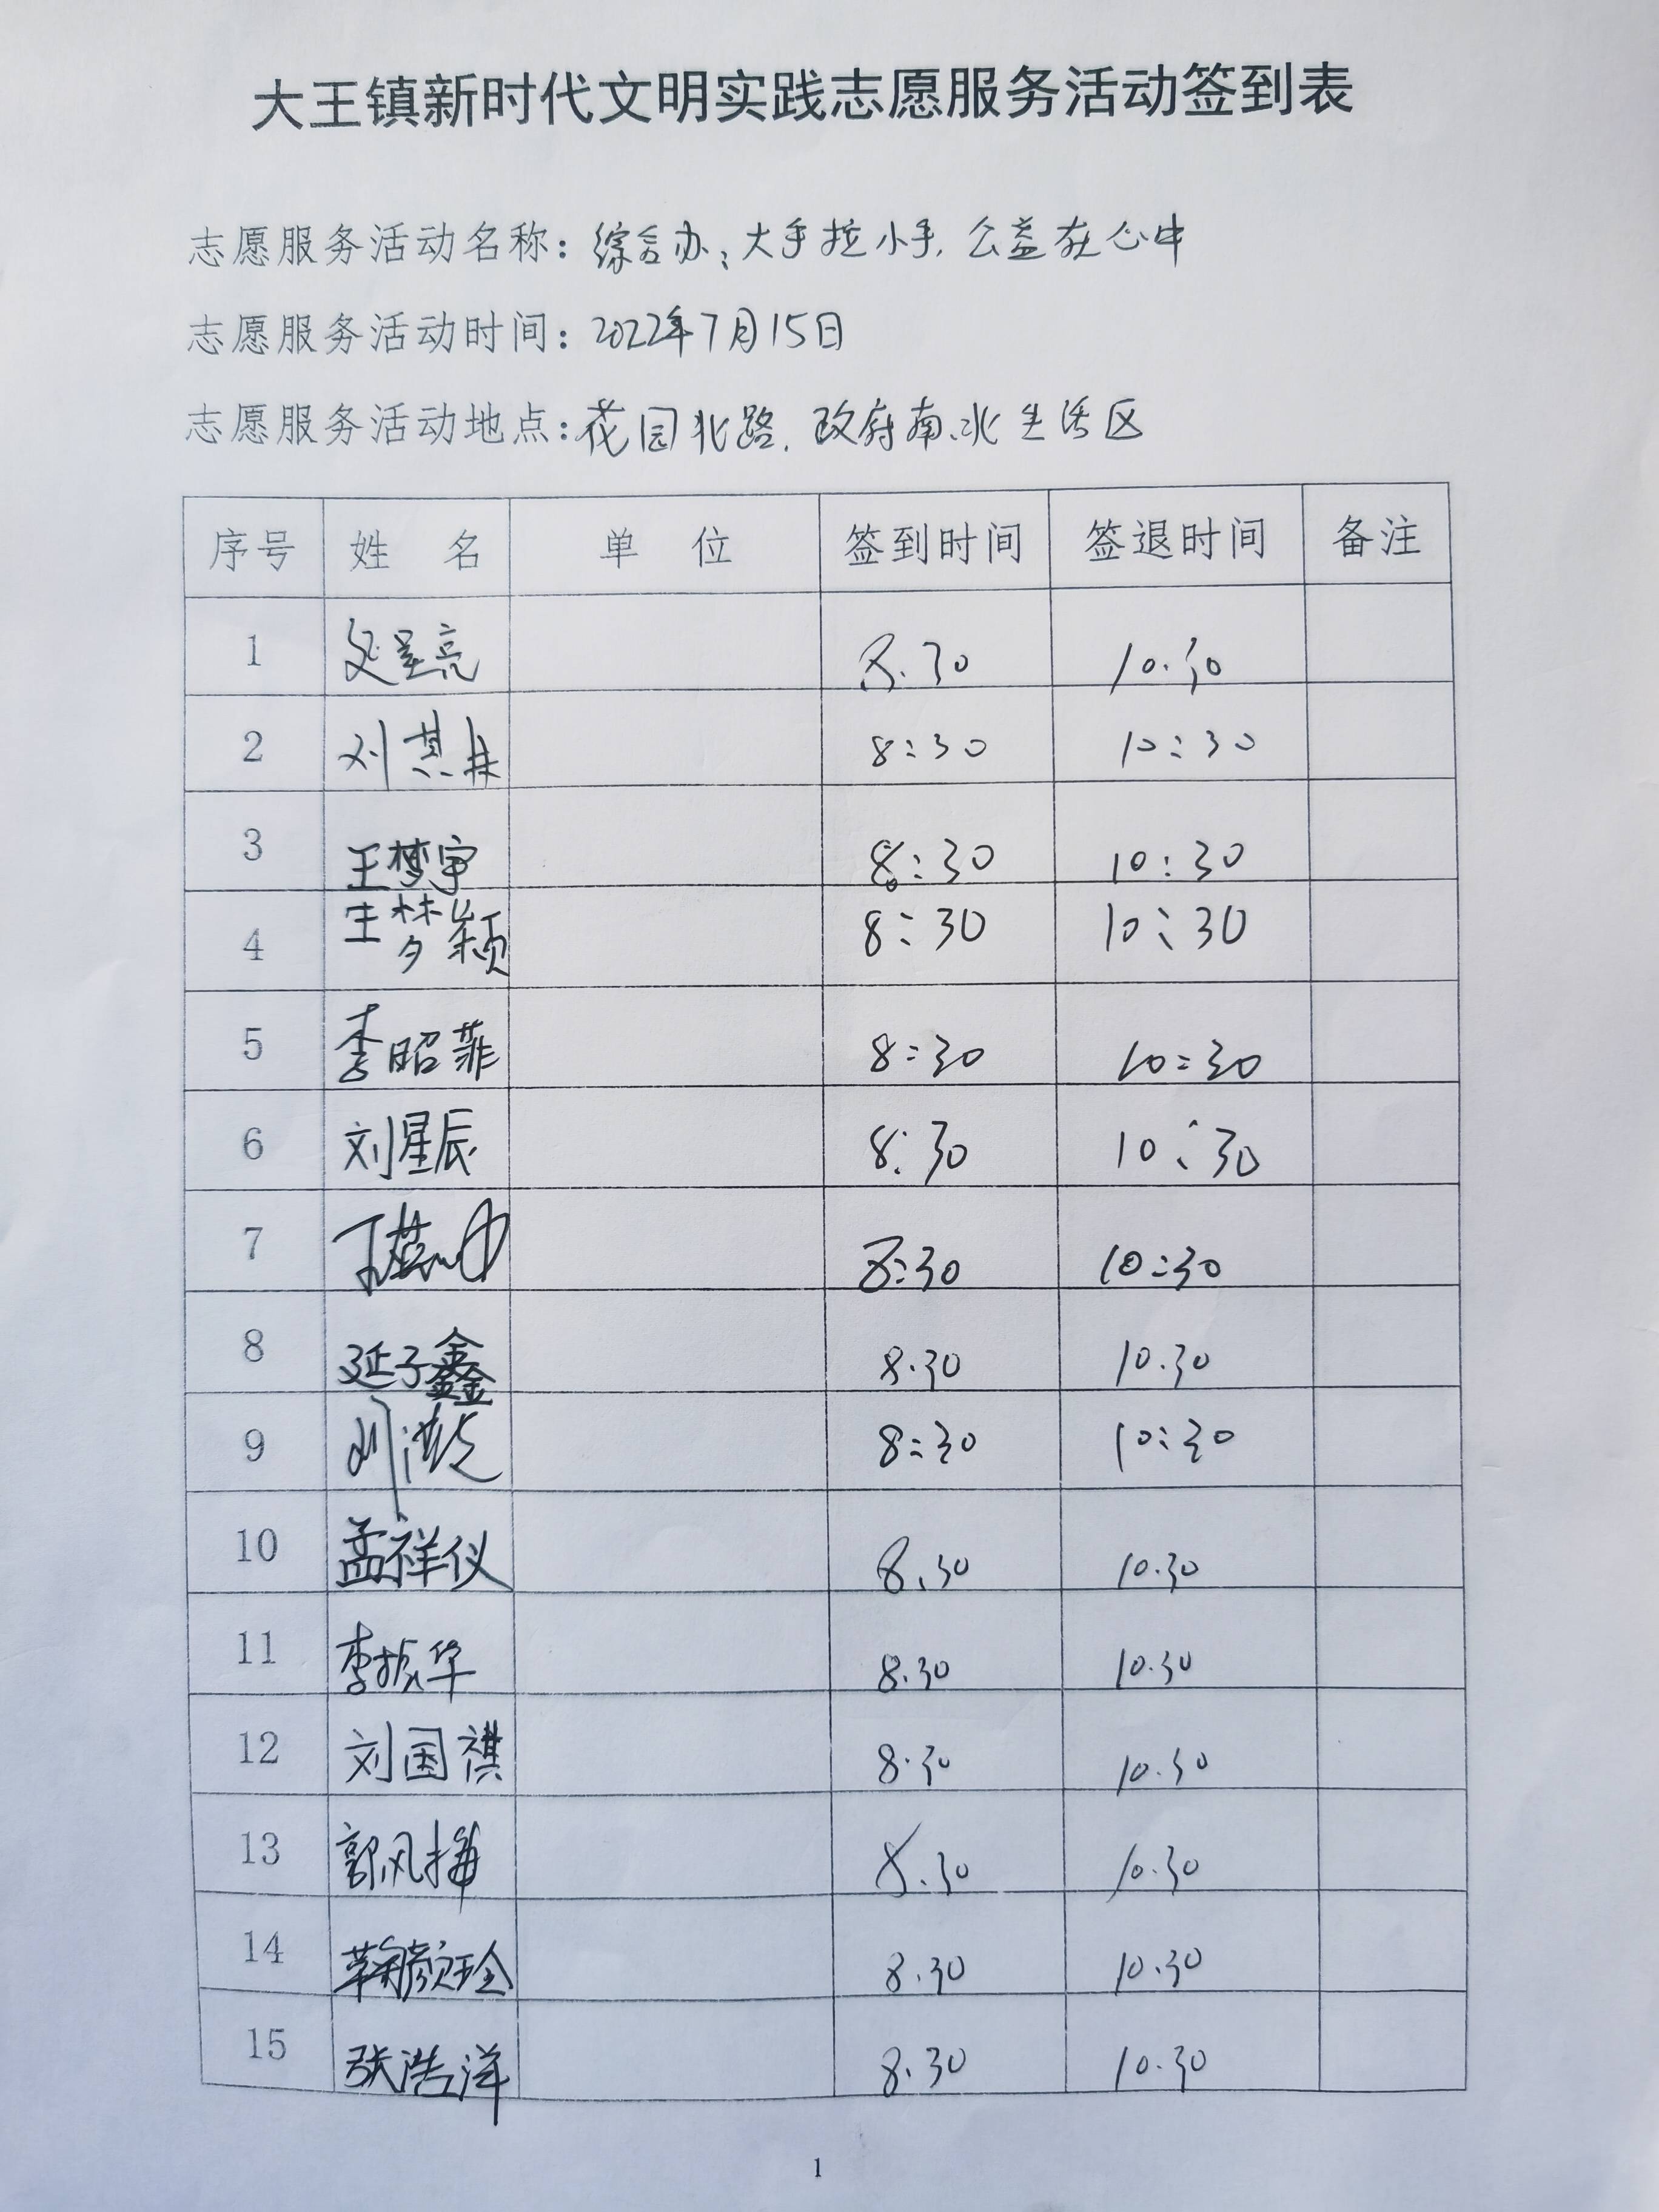 大王镇新时代文明实践志愿服务活动签到表
志愿服务活动名称：综合办：大手拉小手，公益在心中
志愿服务活动时间：2022年7月15日
志愿服务活动地点：花园北路，政府南、北生活区
序号 姓 名 单 位 签到时间 签退时间 备注
1 亮 8.30 10.30
2 刘 8:30 10:30
3 王梦宇 8:30 10:30
4 王梦颖 8:30 10:30
5 李昭菲 8:30 10:30
6 刘星辰 8:30 10:30
7 8:30 10:30
8 延子鑫 8.30 10.30
9 刘 8:30 10:30
10 孟祥仪 8.30 10.30
11 李振华 8.30 10.30
12 刘国祺 8.30 10.30
13 郭风梅 8.30 10.30
14 鞠颜玲 8.30 10.30
15 张浩洋 8.30 10.30
1